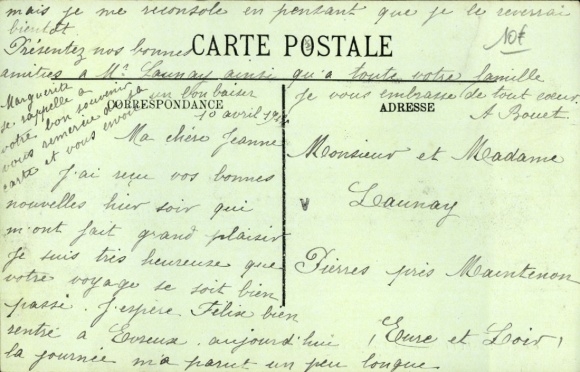 CARTE POSTALE
CORRESPONDANCE
ADRESSE
10 avril
Ma chère Jeanne
J'ai reçu vos bonnes
nouvelles hier soir qui
m'ont fait grand plaisir
Je suis très heureuse que
votre voyage se soit bien
passé. J'espère Félix bien
rentré à Evreux. aujourd'hui
la journée m'a parut un peu longue
mais je me reconsole en pensant que je le reverrai
bientôt.
Présentez nos bonnes
amitiés à Mr Launay ainsi qu'à toute votre famille
Je vous embrasse de tout cœur.
A Bouet.
Marguerite
se rappelle à
votre bon souvenir
vous remercie de sa
carte et vous envoie
un bon baiser
Monsieur et Madame
Launay
Pierres près Maintenon
(Eure et Loir)
10€